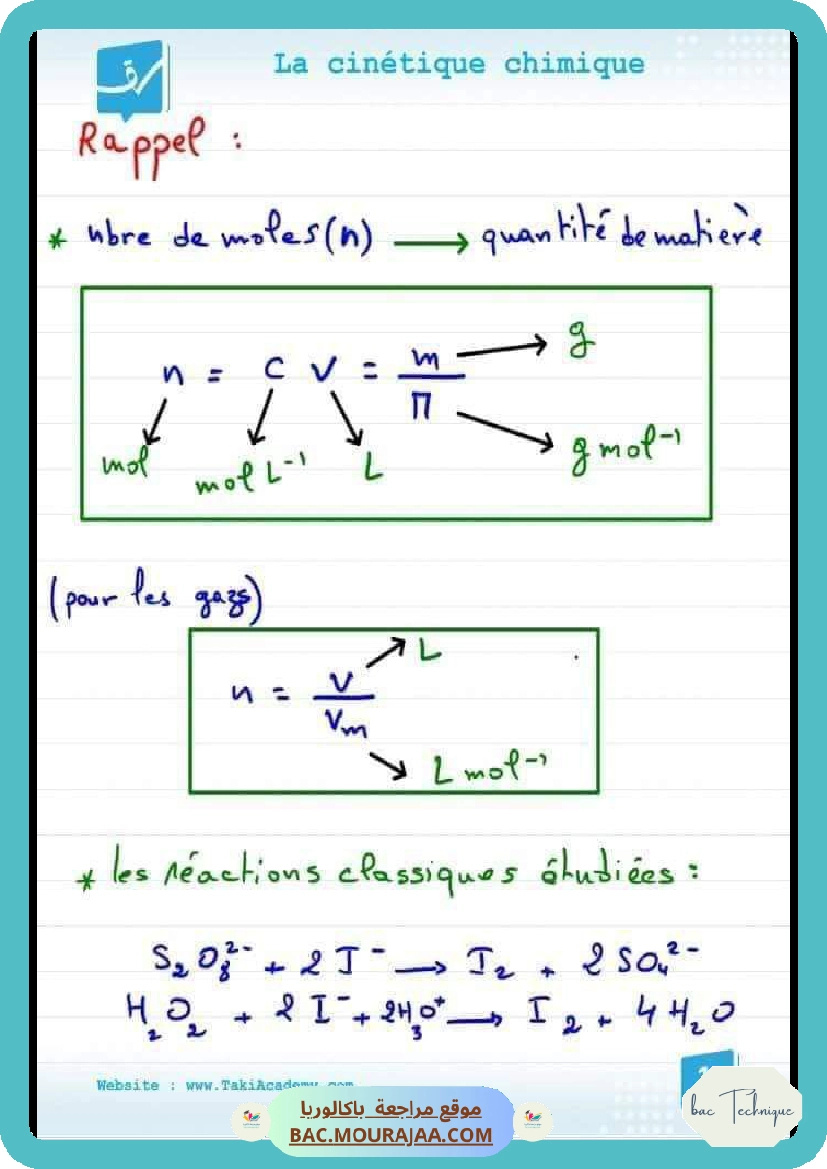 La cinétique chimique
Rappel :
* nbre de moles(n) → quantité de matière
n = C V = m/M
g
mol
mol L⁻¹
L
g mol⁻¹
(pour les gazs)
n = V/Vm
L
L mol⁻¹
* les réactions classiques étudiées :
S₂O₈²⁻ + 2 I⁻ → I₂ + 2 SO₄²⁻
H₂O₂ + 2 I⁻ + 2H₃O⁺ → I₂ + 4 H₂O
Website : www.TakiAcademy.com
موقع مراجعة باكالوريا
BAC.MOURAJAA.COM
bac Technique